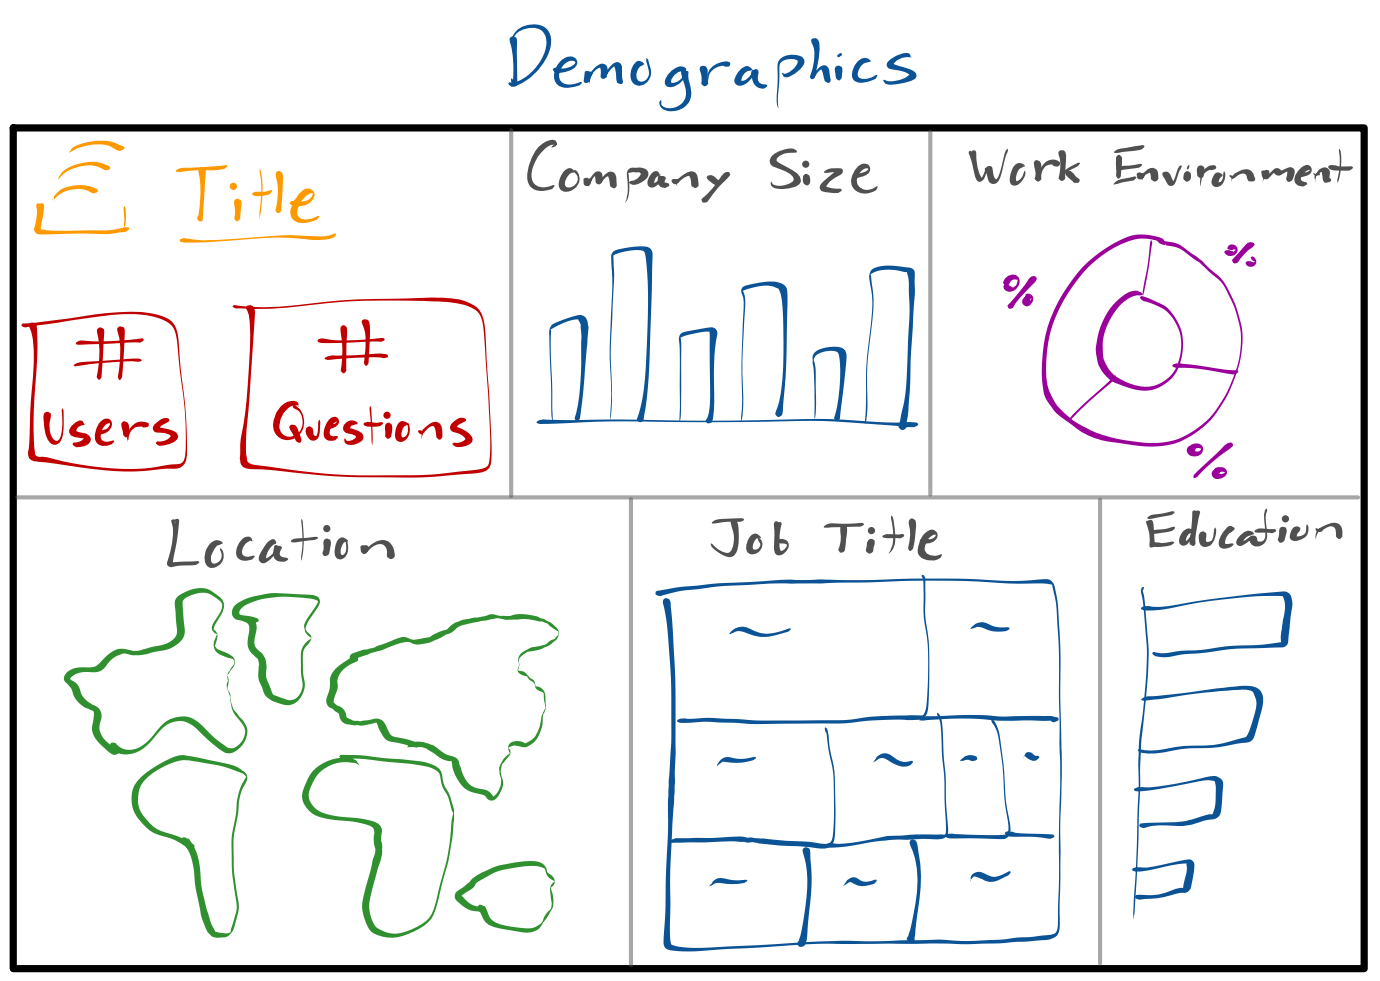 Demographics
Title
#
Users
#
Questions
Company Size
Work Environment
%
%
%
Location
Job Title
~
~
~
~
~
~
~
~
~
Education